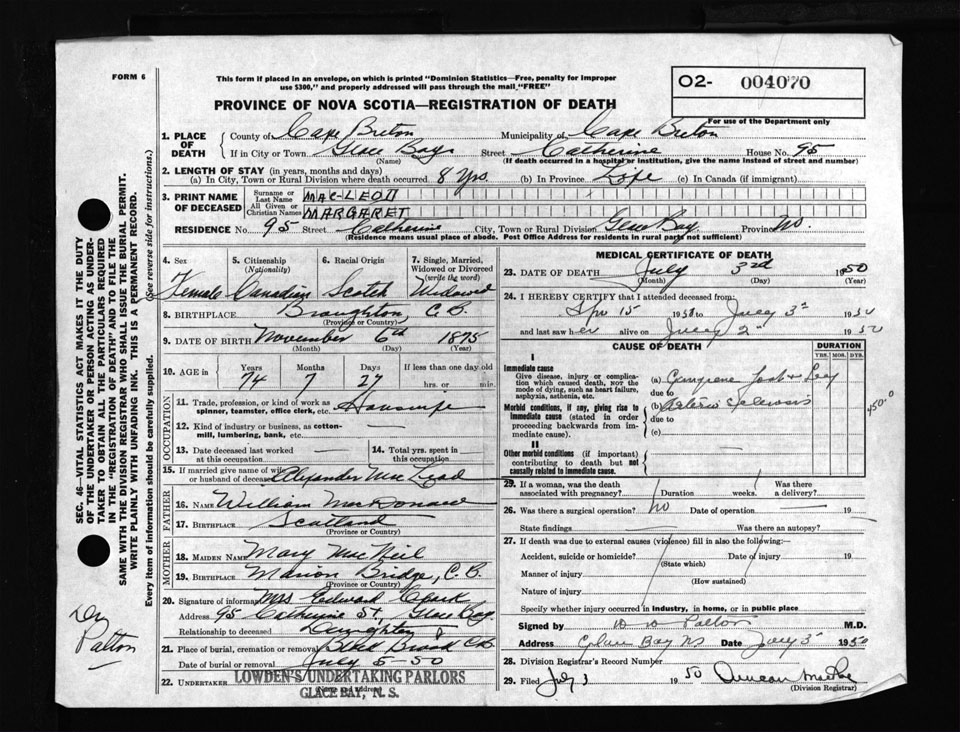 FORM 6
This form if placed in an envelope, on which is printed "Dominion Statistics—Free, penalty for improper
use $300," and properly addressed will pass through the mail "FREE"
O2- 004070
For use of the Department only
PROVINCE OF NOVA SCOTIA—REGISTRATION OF DEATH
1. PLACE OF DEATH
County of Cape Breton Municipality of Cape Breton
If in City or Town Glace Bay Street Catherine House No. 95
(Name) (If death occurred in a hospital or institution, give the name instead of street and number)
2. LENGTH OF STAY (in years, months and days)
(a) In City, Town or Rural Division where death occurred 8 yrs. (b) In Province Life (c) In Canada (if immigrant)
3. PRINT NAME OF DECEASED
Surname or Last Name MAC-LEOD
All Given or Christian Names MARGARET
RESIDENCE No. 95 Street Catherine City, Town or Rural Division Glace Bay Province NS.
(Residence means usual place of abode. Post Office Address for residents in rural parts not sufficient)
4. Sex 5. Citizenship (Nationality) 6. Racial Origin 7. Single, Married, Widowed or Divorced (write the word)
Female Canadian Scotch Widowed
8. BIRTHPLACE Broughton, C.B.
(Province or Country)
9. DATE OF BIRTH November 6th 1875
(Month) (Day) (Year)
10. AGE in Years Months Days If less than one day old
74 7 27 hrs. or min.
OCCUPATION
11. Trade, profession, or kind of work as spinner, teamster, office clerk, etc. Housewife
12. Kind of industry or business, as cotton-mill, lumbering, bank, etc.
13. Date deceased last worked at this occupation
14. Total yrs. spent in this occupation
15. If married give name of wife or husband of deceased Alexander MacLeod
FATHER
16. Name William MacDonald
17. Birthplace Scotland
(Province or Country)
MOTHER
18. MAIDEN NAME Mary MacNeil
19. BIRTHPLACE Marion Bridge, C.B.
(Province or Country)
20. Signature of informant Mrs Edward
Address 95 Catherine St, Glace Bay
Relationship to deceased Daughter
21. Place of burial, cremation or removal C.B.
Date of burial or removal July 5-50
22. UNDERTAKER LOWDEN'S UNDERTAKING PARLORS
(Name and address)
GLACE BAY, N. S.
MEDICAL CERTIFICATE OF DEATH
23. DATE OF DEATH July 3rd 1950
(Month) (Day) (Year)
24. I HEREBY CERTIFY that I attended deceased from:
15 1950 to July 3 1950
and last saw her alive on July 2 1950
CAUSE OF DEATH
DURATION
YRS. MOS. DYS.
I
Immediate cause
Give disease, injury or complication which caused death, NOT the mode of dying, such as heart failure, asphyxia, asthenia, etc.
(a) Gangrene foot & leg
due to
Morbid conditions, if any, giving rise to immediate cause (stated in order proceeding backwards from immediate cause).
(b) Arterio Sclerosis
due to
(c)
450.0
II
Other morbid conditions (if important) contributing to death but not causally related to immediate cause.
25. If a woman, was the death associated with pregnancy? Duration weeks. Was there a delivery?
26. Was there a surgical operation? no Date of operation 19
State findings Was there an autopsy?
27. If death was due to external causes (violence) fill in also the following:—
Accident, suicide or homicide? Date of injury 19
(State which)
Manner of injury
(How sustained)
Nature of injury
Specify whether injury occurred in industry, in home, or in public place
Signed by Patton M.D.
Address Glace Bay NS Date July 3 1950
28. Division Registrar's Record Number
29. Filed July 3 1950 Duncan
(Division Registrar)
SEC. 46—VITAL STATISTICS ACT MAKES IT THE DUTY
OF THE UNDERTAKER OR PERSON ACTING AS UNDER-
TAKER TO OBTAIN ALL THE PARTICULARS REQUIRED
IN THE "REGISTRATION OF DEATH" AND TO FILE THE
SAME WITH THE DIVISION REGISTRAR WHO SHALL ISSUE THE BURIAL PERMIT.
WRITE PLAINLY WITH UNFADING INK. THIS IS A PERMANENT RECORD.
Every item of information should be carefully supplied. (See reverse side for instructions.)
Dr
Patton